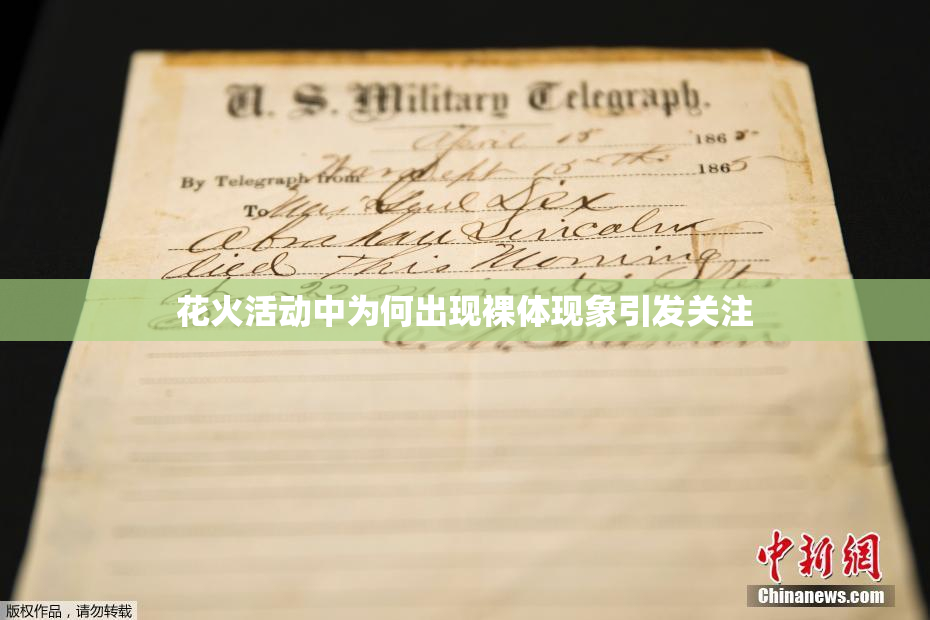 U. S. Military Telegraph.
April 15 1865
By Telegraph from War Dept 15th 1865
To Maj Genl Dix
Abraham Lincoln
died This Morning
at 22 minutes after
花火活动中为何出现裸体现象引发关注
中新网
Chinanews.com
版权作品，请勿转载